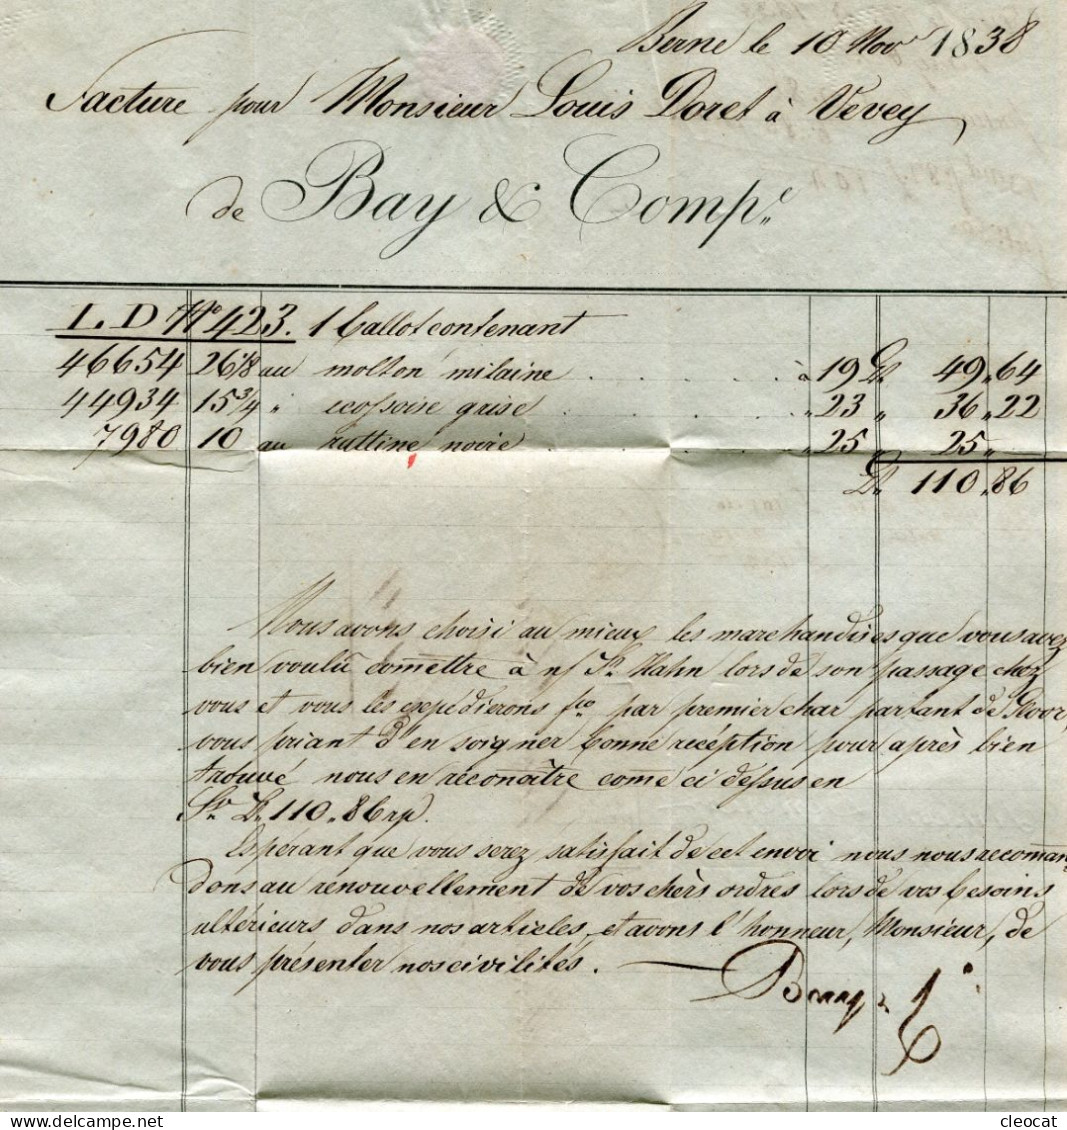 Berne le 10 Nov.e 1838
Facture pour Monsieur Louis Doret à Vevey
de Bay & Comp.e
L. D N.o 423. 1 Ballot contenant
46654 26 1/8 au molton milaine à 19 Lb. 49 „ 64
44934 15 3/4 „ ecossoise grise „ 23 „ 36 „ 22
7980 10 au rattine noire „ 25 „ 25 „
Lb. 110 „ 86
Nous avons choisi au mieux les marchandises que vous avez
bien voulu comettre à n/ Sr. Hahn lors de son passage chez
vous et vous les expédierons fco par premier char partant de
vous priant d'en soigner bonne récéption pour après bien
trouvé nous en réconaître come ci dessus en
Sv. Lb. 110 „ 86 rp.
Espérant que vous serez satisfait de cet envoi nous nous recoman
dons au rénouvellement de vos chèrs ordres lors de vos besoins
ultérieurs dans nos articles, et avons l'honneur, Monsieur, de
vous présenter nos civilités.
Bay & Co
cleocat